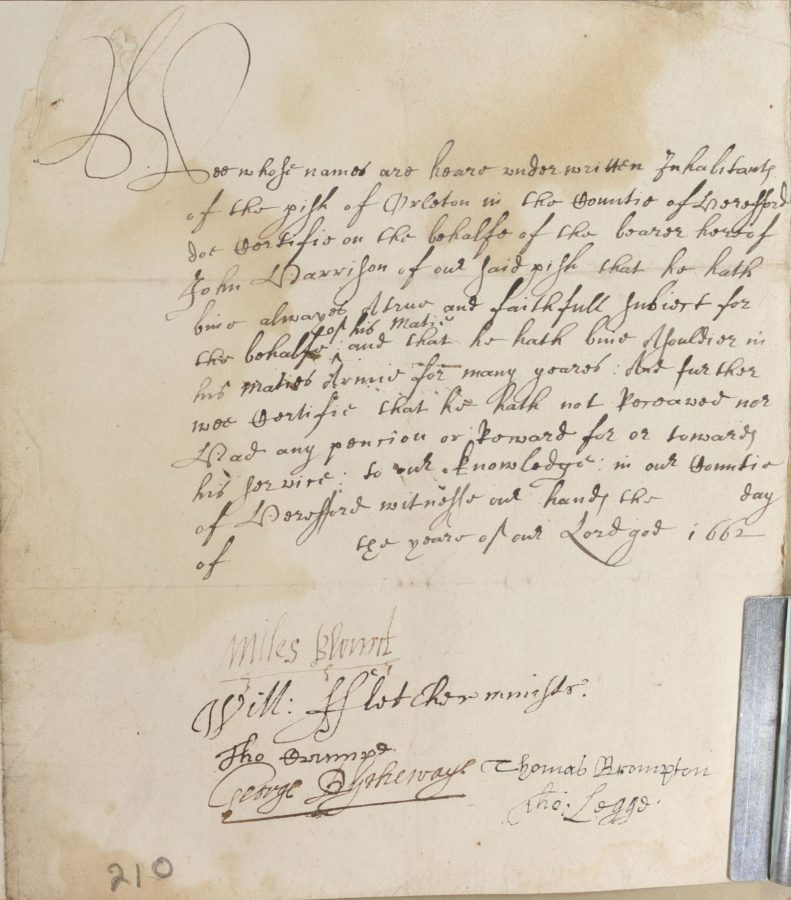 Wee whose names are heare underwritten Inhabitants
of the pish of Orleton in the Countie of Hereford
doe Certifie on the behalfe of the bearer hereof
John Harrison of our said pish that he hath
bine alwayes A true and faithfull subiect for
of his Matie
the behalfe and that he hath bine A souldier in
his Maties Armie for many yeares: And further
wee Certifie that he hath not Receaved nor
Had any pencion or Reward for or towards
his service: to our knowledge: in our Countie
of Hereford witnesse our hands the day
of the yeare of our Lord god 1662
Miles Blount
Will: Ffletcher ministr.
Tho Crumpe
George Thomas Brompton
Tho: Legge
210